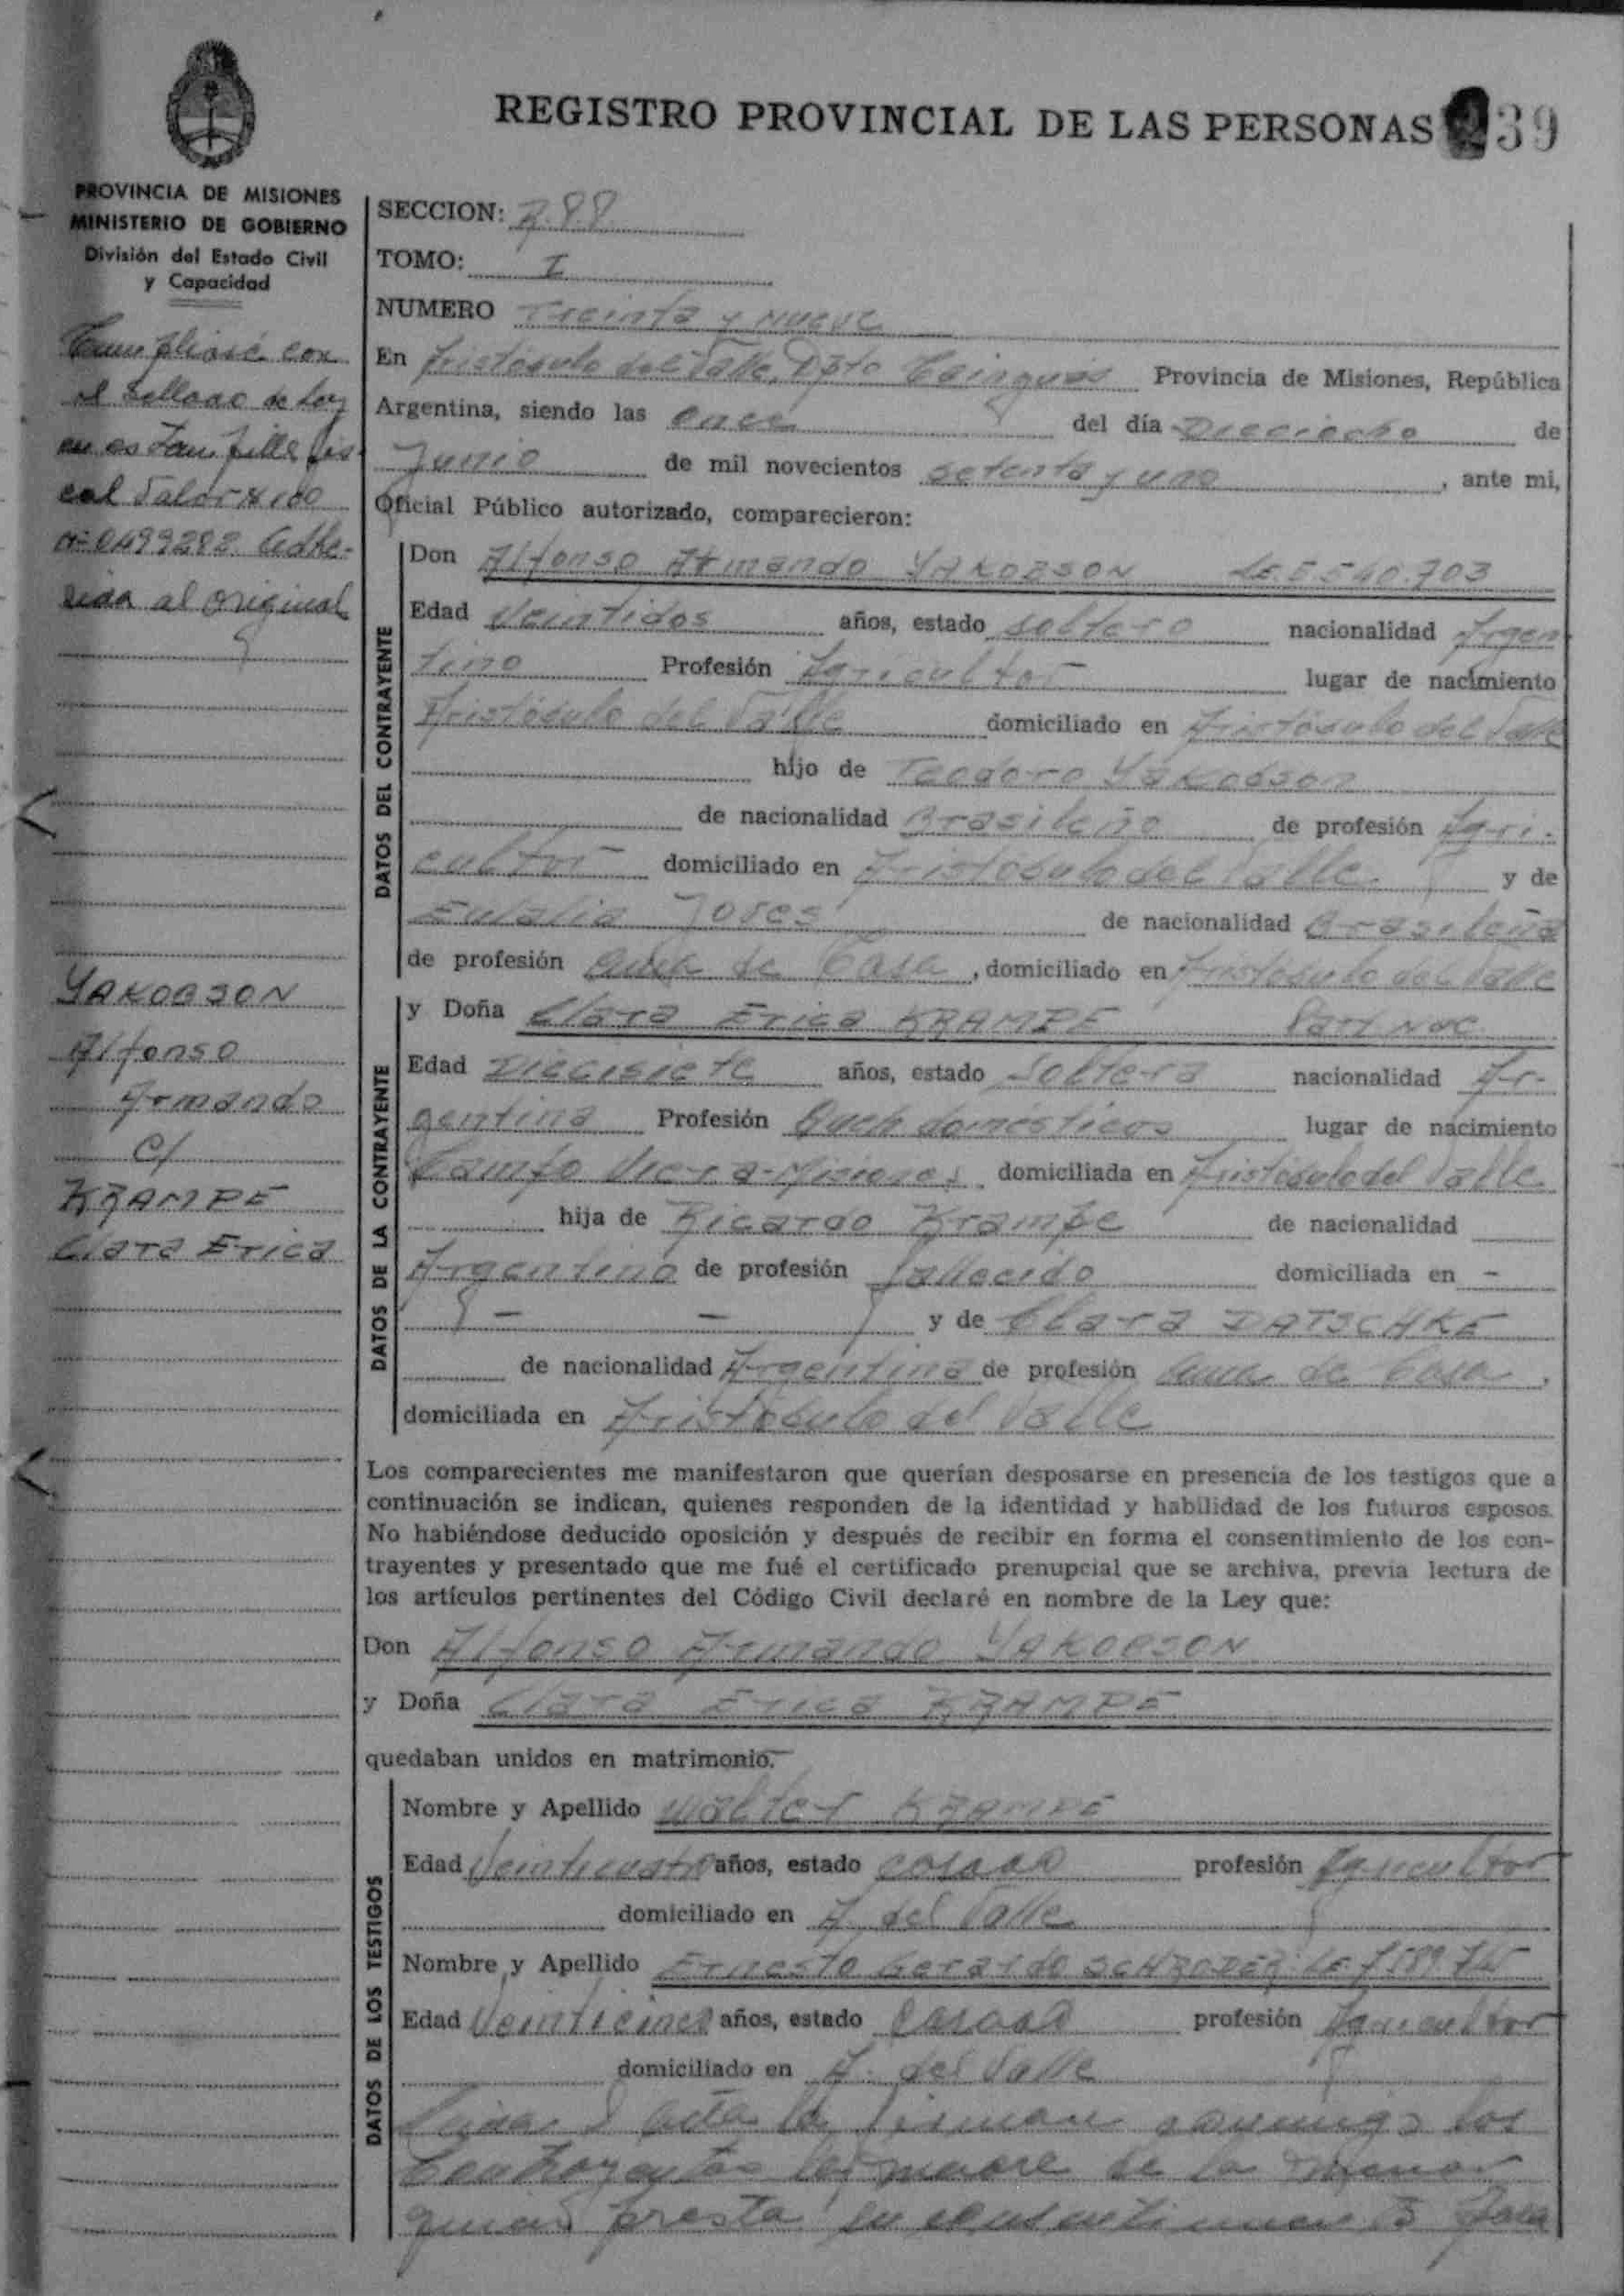 REGISTRO PROVINCIAL DE LAS PERSONAS 39
PROVINCIA DE MISIONES
MINISTERIO DE GOBIERNO
División del Estado Civil
y Capacidad
Cumpliose con
el sellado de Ley
en estampilla fis-
cal Valor $ 1,00
Nº 0499282 adhe-
rida al original
YAKOBSON
Alfonso
Armando
C/
KRAMPE
Clara Erica
SECCION:
TOMO: I
NUMERO Treinta y nueve
En Aristóbulo del Valle, Dpto Cainguás Provincia de Misiones, República
Argentina, siendo las once del día Dieciocho de
Junio de mil novecientos setenta y uno, ante mi,
Oficial Público autorizado, comparecieron:
DATOS DEL CONTRAYENTE
Don Alfonso Armando YAKOBSON LE. 8.540.703
Edad Veintidos años, estado soltero nacionalidad Argen
tino Profesión Agricultor lugar de nacimiento
Aristóbulo del Valle domiciliado en Aristóbulo del Valle
hijo de Teodoro Yakobson
de nacionalidad Brasileño de profesión Agri-
cultor domiciliado en Aristóbulo del Valle y de
Eulalia de nacionalidad Brasileña
de profesión Queh de Casa, domiciliado en Aristóbulo del Valle
DATOS DE LA CONTRAYENTE
y Doña Clara Erica KRAMPE
Edad Diecisiete años, estado Soltera nacionalidad Ar-
gentina Profesión Queh domésticos lugar de nacimiento
Campo Viera-Misiones domiciliada en Aristóbulo del Valle
hija de Ricardo Krampe de nacionalidad
Argentino de profesión fallecido domiciliada en -
- - y de Clara DATSCHKE
de nacionalidad Argentina de profesión Queh de Casa,
domiciliada en Aristóbulo del Valle
Los comparecientes me manifestaron que querían desposarse en presencia de los testigos que a
continuación se indican, quienes responden de la identidad y habilidad de los futuros esposos.
No habiéndose deducido oposición y después de recibir en forma el consentimiento de los con-
trayentes y presentado que me fué el certificado prenupcial que se archiva, previa lectura de
los artículos pertinentes del Código Civil declaré en nombre de la Ley que:
Don Alfonso Armando YAKOBSON
y Doña Clara Erica KRAMPE
quedaban unidos en matrimonio.
DATOS DE LOS TESTIGOS
Nombre y Apellido Walter KRAMPE
Edad Veinticuatro años, estado casado profesión Agricultor
domiciliado en A. del Valle
Nombre y Apellido Ernesto Gerardo SCHRODER: LE
Edad Veinticinco años, estado casado profesión Agricultor
domiciliado en A. del Valle
Leida el acta la firman conmigo los
Contrayentes la madre de la menor
quien presta su consentimiento para